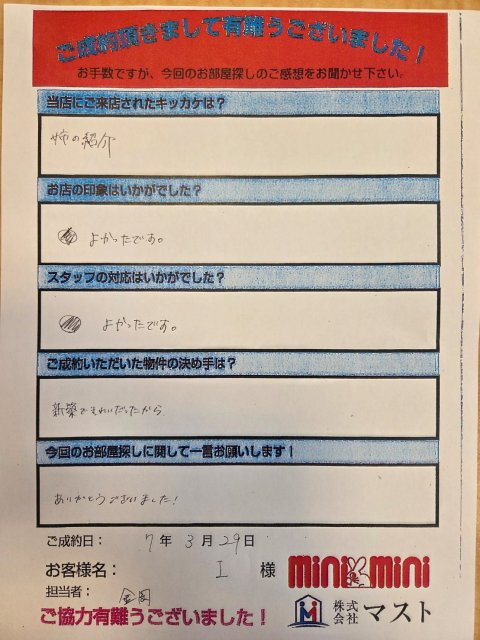 ご成約頂きまして有難うございました！
お手数ですが、今回のお部屋探しのご感想をお聞かせ下さい。
当店にご来店されたキッカケは？
姉の紹介
お店の印象はいかがでした？
よかったです。
スタッフの対応はいかがでした？
よかったです。
ご成約いただいた物件の決め手は？
新築できれいだったから
今回のお部屋探しに関して一言お願いします！
ありがとうございました！
ご成約日： 7 年 3 月 29 日
お客様名： I 様
mini mini
担当者：
ご協力有難うございました！
株式会社 マスト